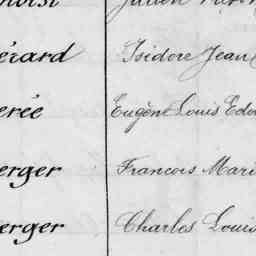 érard Isidore Jean
erée Eugène Louis Edo
erger Francois Mari
erger Charles Louis